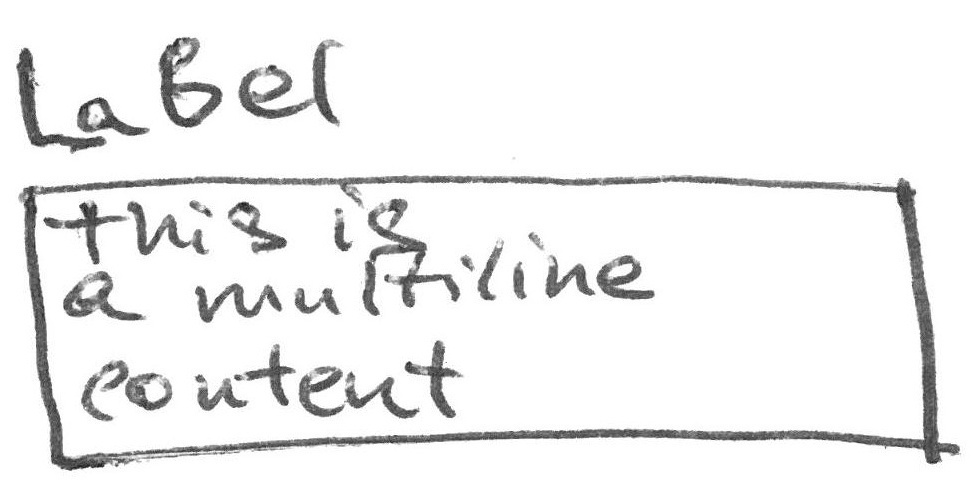 Label
this is
a multiline
content